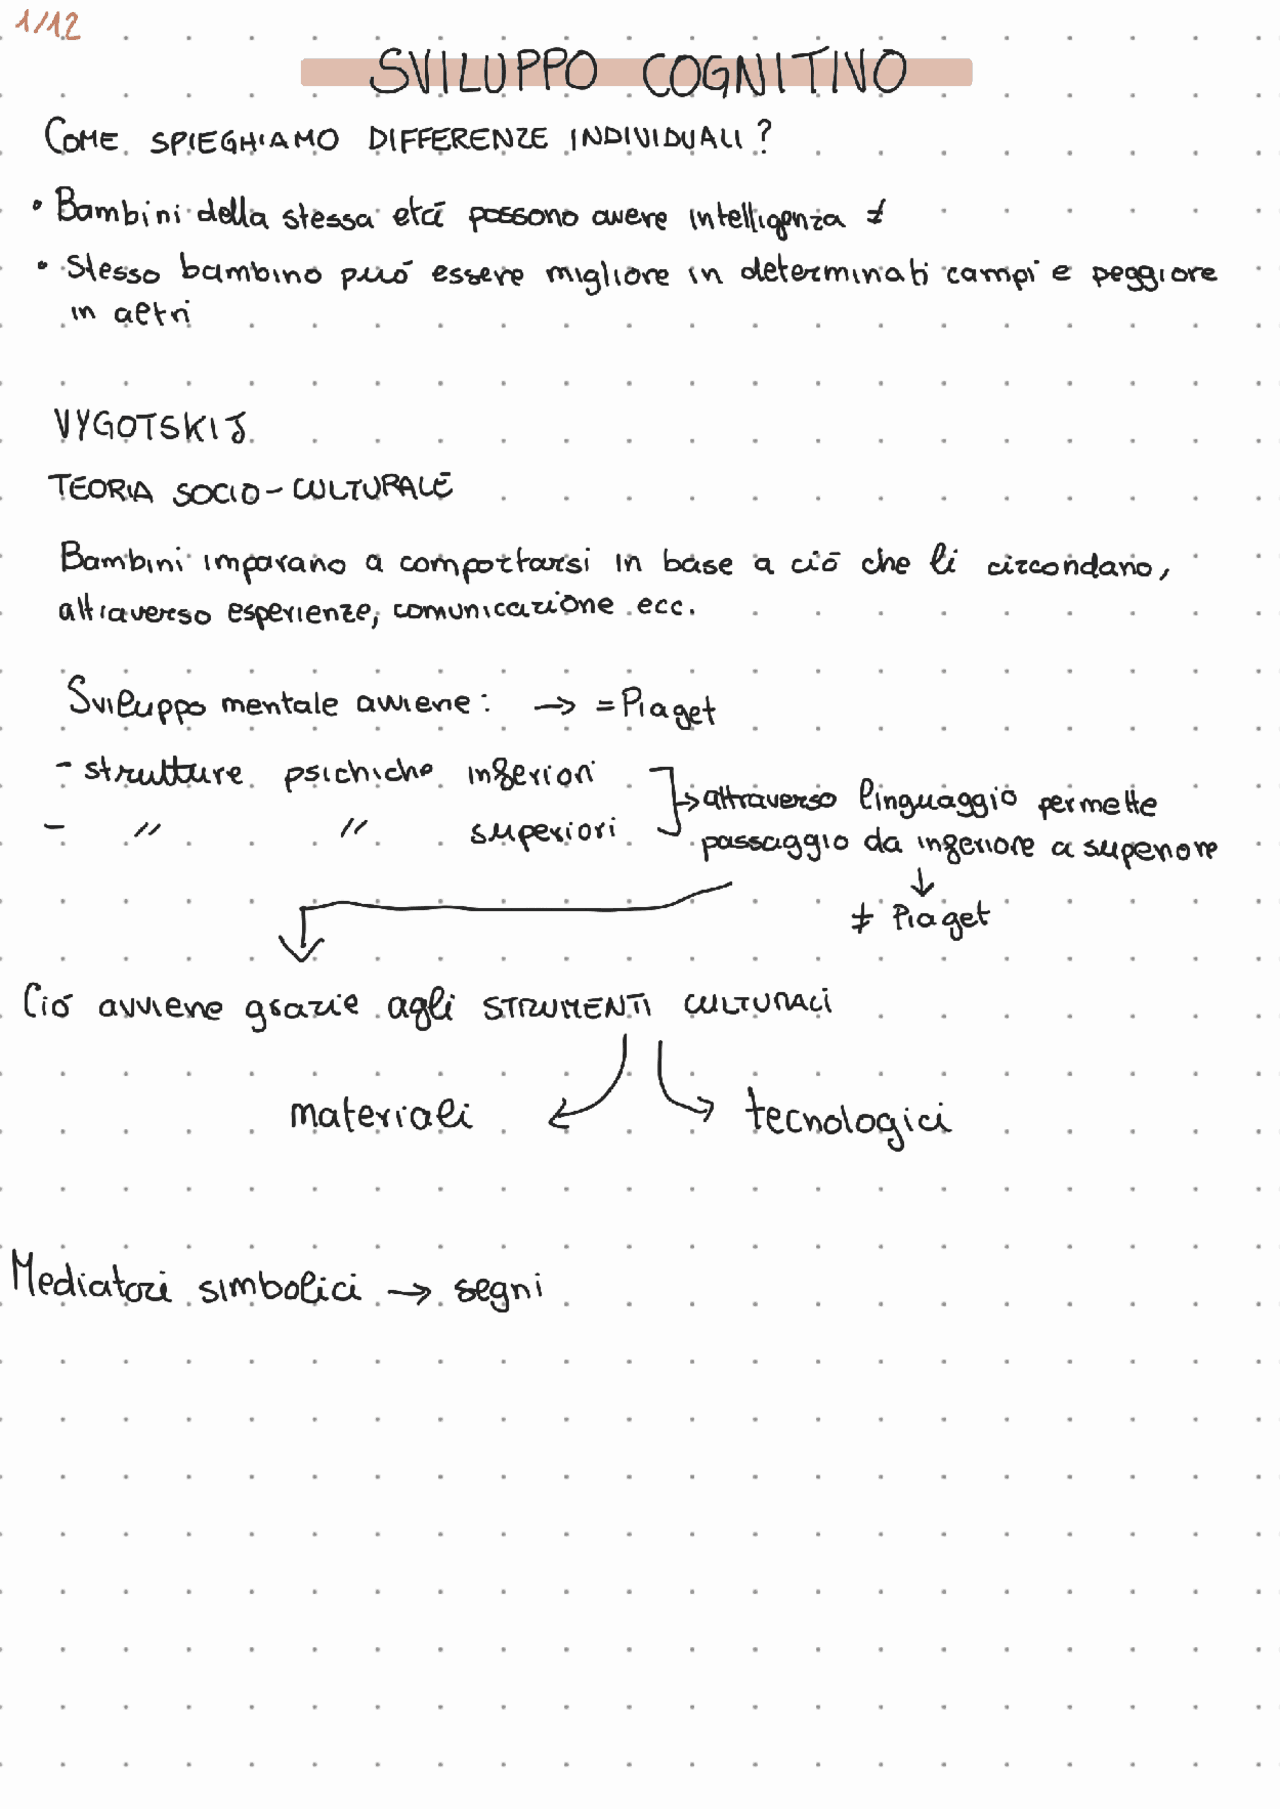 1/12
SVILUPPO COGNITIVO
COME SPIEGHIAMO DIFFERENZE INDIVIDUALI?
• Bambini della stessa etá possono avere intelligenza ≠
• Stesso bambino puó essere migliore in determinati campi e peggiore
in altri
VYGOTSKIJ
TEORIA SOCIO-CULTURALE
Bambini imparano a comportarsi in base a ció che li circondano,
attraverso esperienze, comunicazione ecc.
Sviluppo mentale avviene: → = Piaget
- strutture psichiche inferiori
- // // superiori
→ attraverso linguaggio permette
passaggio da inferiore a superiore
↓
≠ Piaget
Ció avviene grazie agli STRUMENTI CULTURALI
materiali ← → tecnologici
Mediatori simbolici → segni